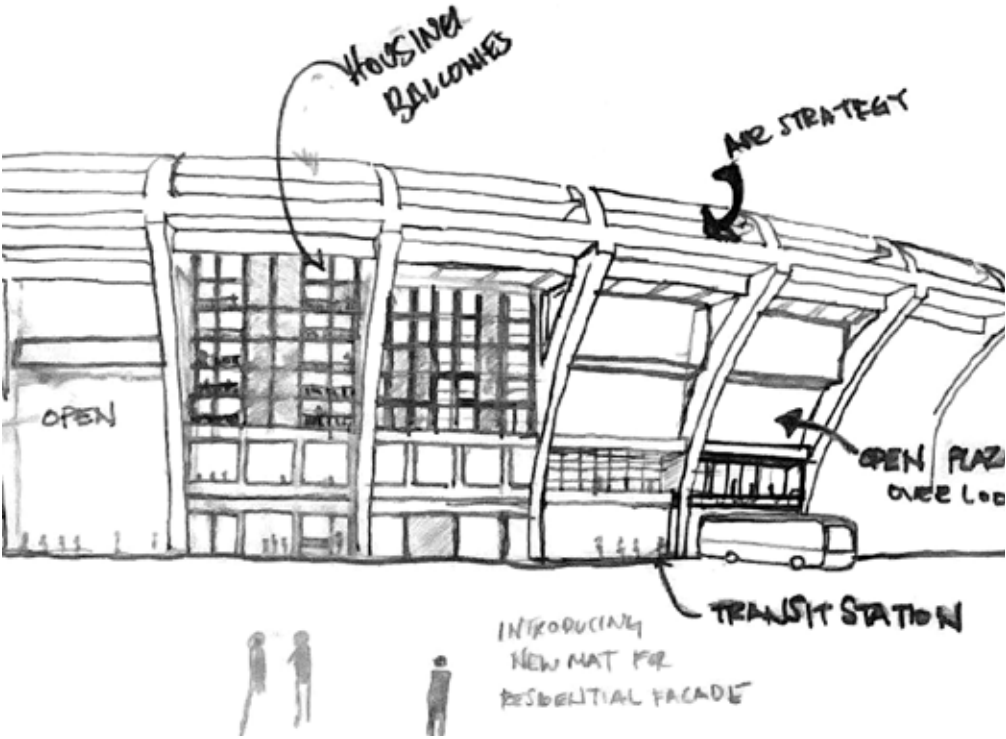 HOUSING
BALCONIES
AIR STRATEGY
OPEN
OPEN PLAZ
OVER LOB
TRANSIT STATION
INTRODUCING
NEW MAT FOR
RESIDENTIAL FACADE